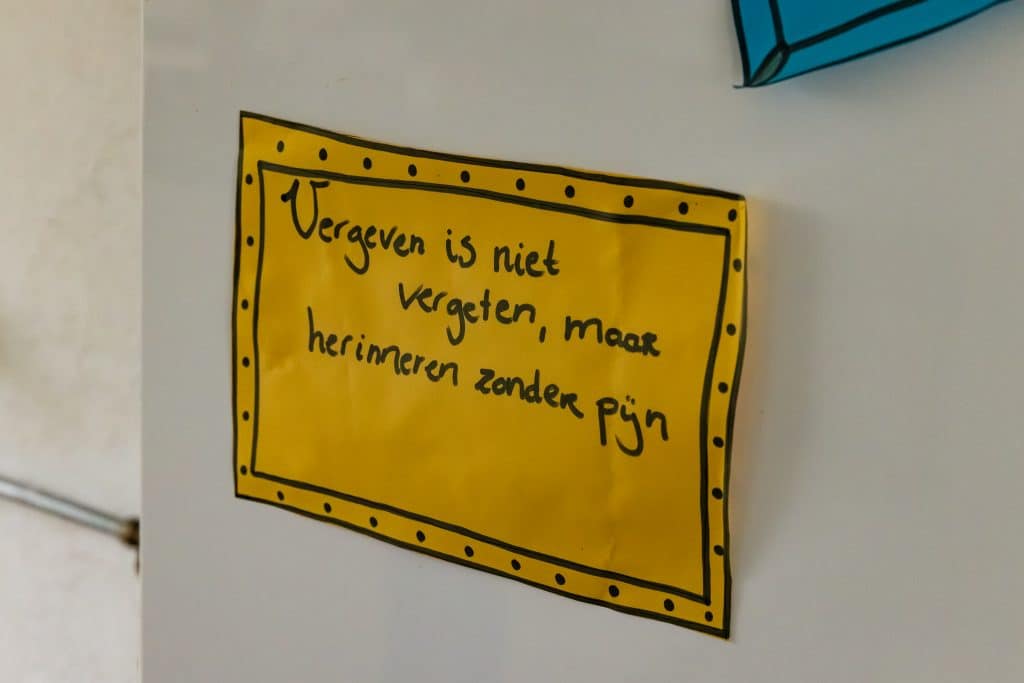 Vergeven is niet
vergeten, maar
herinneren zonder pijn